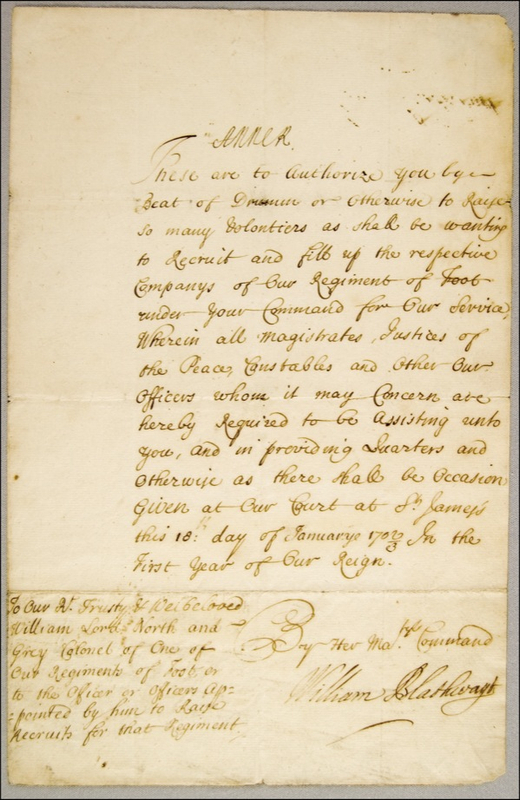 ANNE R.
These are to Authorize you by
Beat of Drumm or Otherwise to Raise
so many Volontiers as shall be wanting
to Recruit and fill up the respective
Companys of Our Regiment of Foot
under Your Command for Our Service,
Wherein all Magistrates, Justices of
the Peace, Constables and Other Our
Officers whom it may Concern are
hereby Required to be Assisting unto
You, and in providing Quarters and
Otherwise as there shall be Occasion
Given at Our Court at St. James's
this 18th: day of January 1702/3 In the
First Year of Our Reign.
By Her Ma.tys Command
William Blathwayt
To Our Rt. Trusty & Welbeloved
William Lord North and
Grey Colonel of One of
Our Regiments of Foot, or
to the Officer or Officers Ap=
=pointed by him to Raise
Recruits for that Regiment,